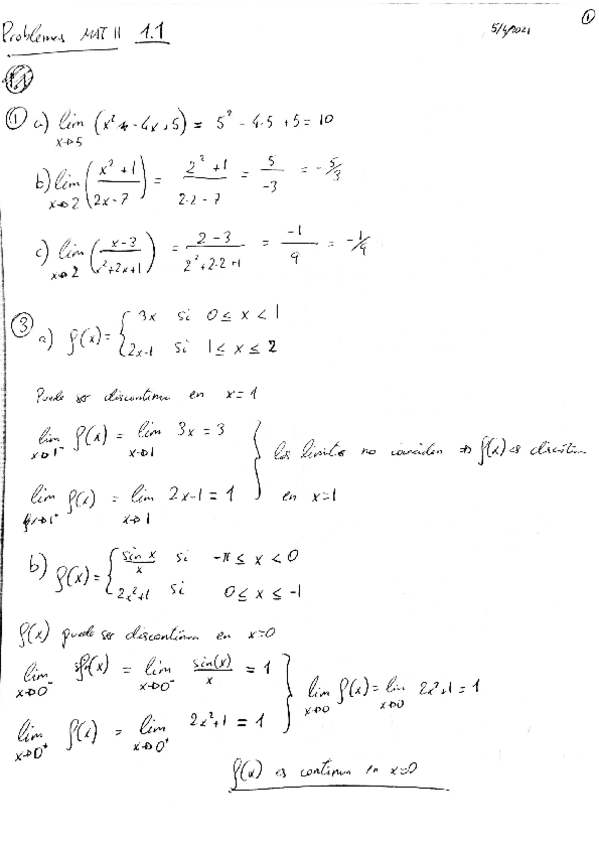 ①
Problemas MAT II 1.1 5/4/2021
① a) lim x→5 (x² - 4x + 5) = 5² - 4·5 + 5 = 10
b) lim x→2 (x² + 1 / 2x - 7) = 2² + 1 / 2·2 - 7 = 5 / -3 = -5/3
c) lim x→2 (x - 3 / x² + 2x + 1) = 2 - 3 / 2² + 2·2 + 1 = -1 / 9 = -1/9
③ a) f(x) = { 3x si 0 ≤ x < 1
2x-1 si 1 ≤ x ≤ 2
Puede ser discontinua en x=1
lim x→1⁻ f(x) = lim x→1 3x = 3 } los limites no coinciden ⇒ f(x) es discontinua
lim x→1⁺ f(x) = lim x→1 2x-1 = 1 } en x=1
b) f(x) = { sin x / x si -π ≤ x < 0
2x²+1 si 0 ≤ x ≤ -1
f(x) puede ser discontinua en x=0
lim x→0⁻ f(x) = lim x→0⁻ sin(x) / x = 1 } lim x→0 f(x) = lim x→0 2x²+1 = 1
lim x→0⁺ f(x) = lim x→0⁺ 2x²+1 = 1
f(x) es continua en x=0